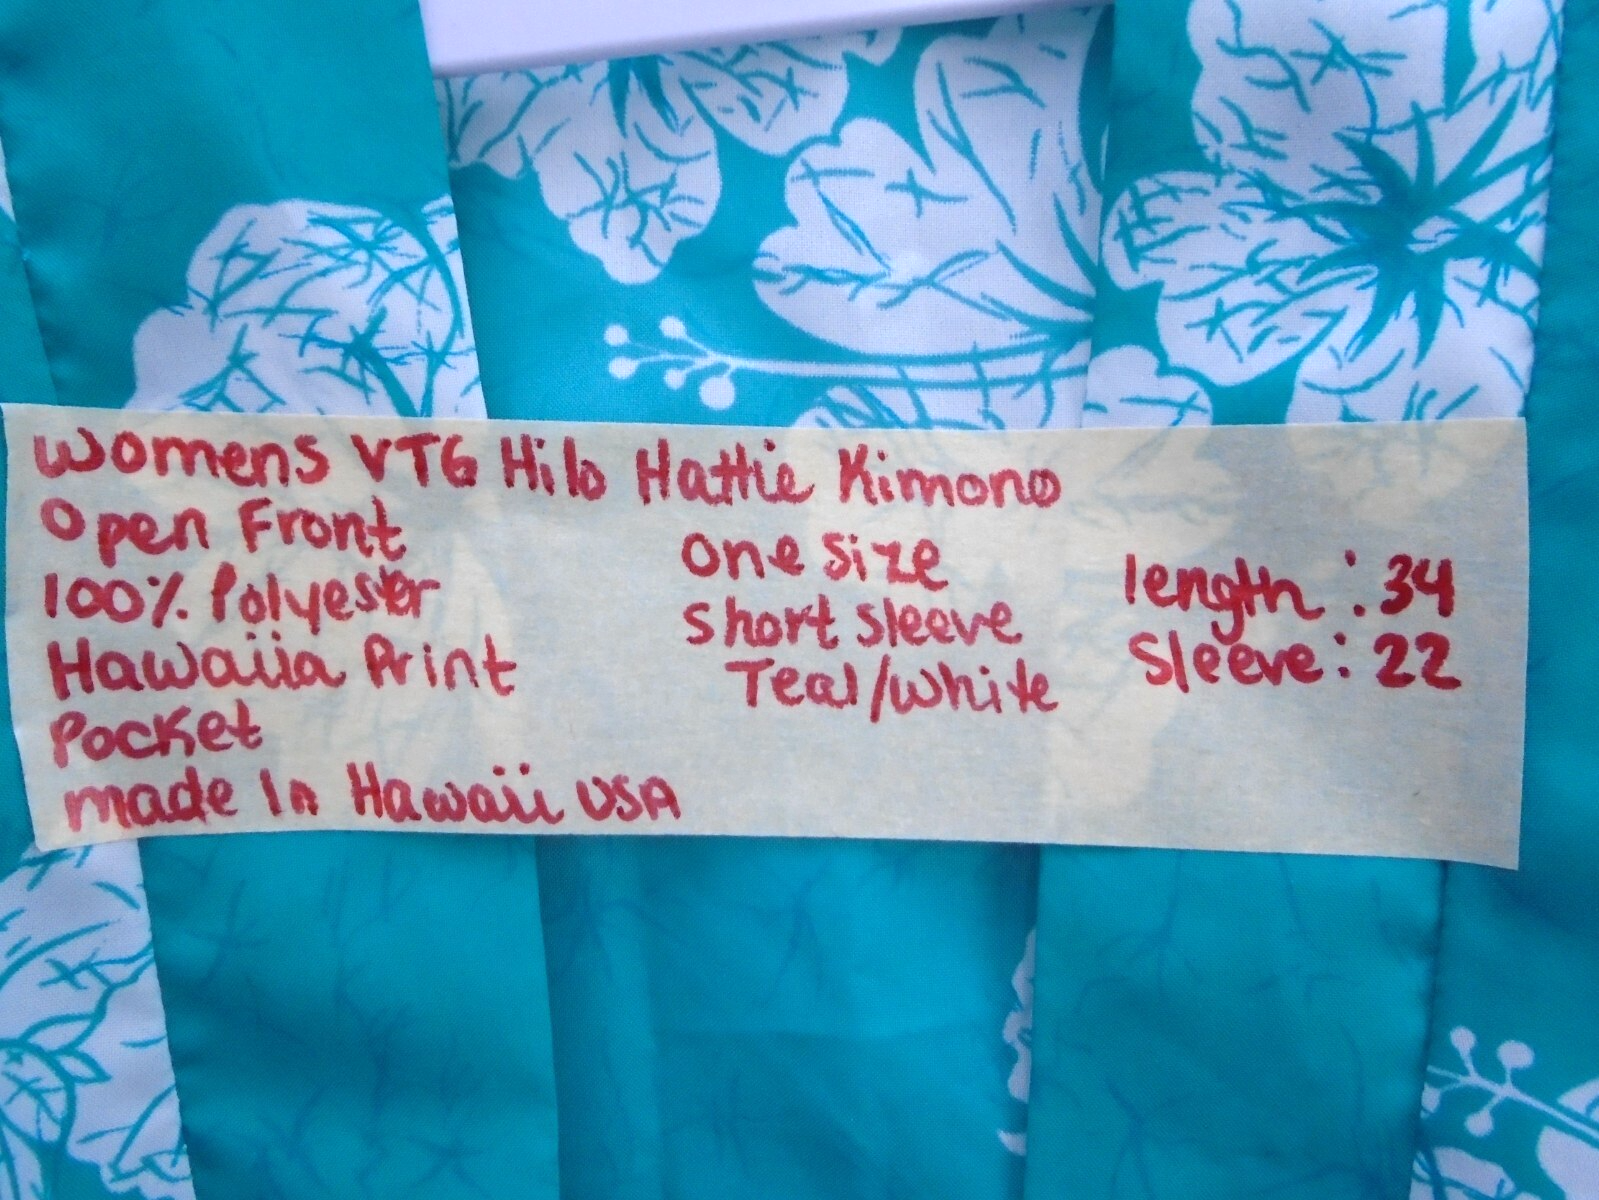 Womens VTG Hilo Hattie Kimono
Open Front
100% Polyester
Hawaiia Print
Pocket
made In Hawaii USA
One Size
Short sleeve
Teal/White
length: 34
Sleeve: 22